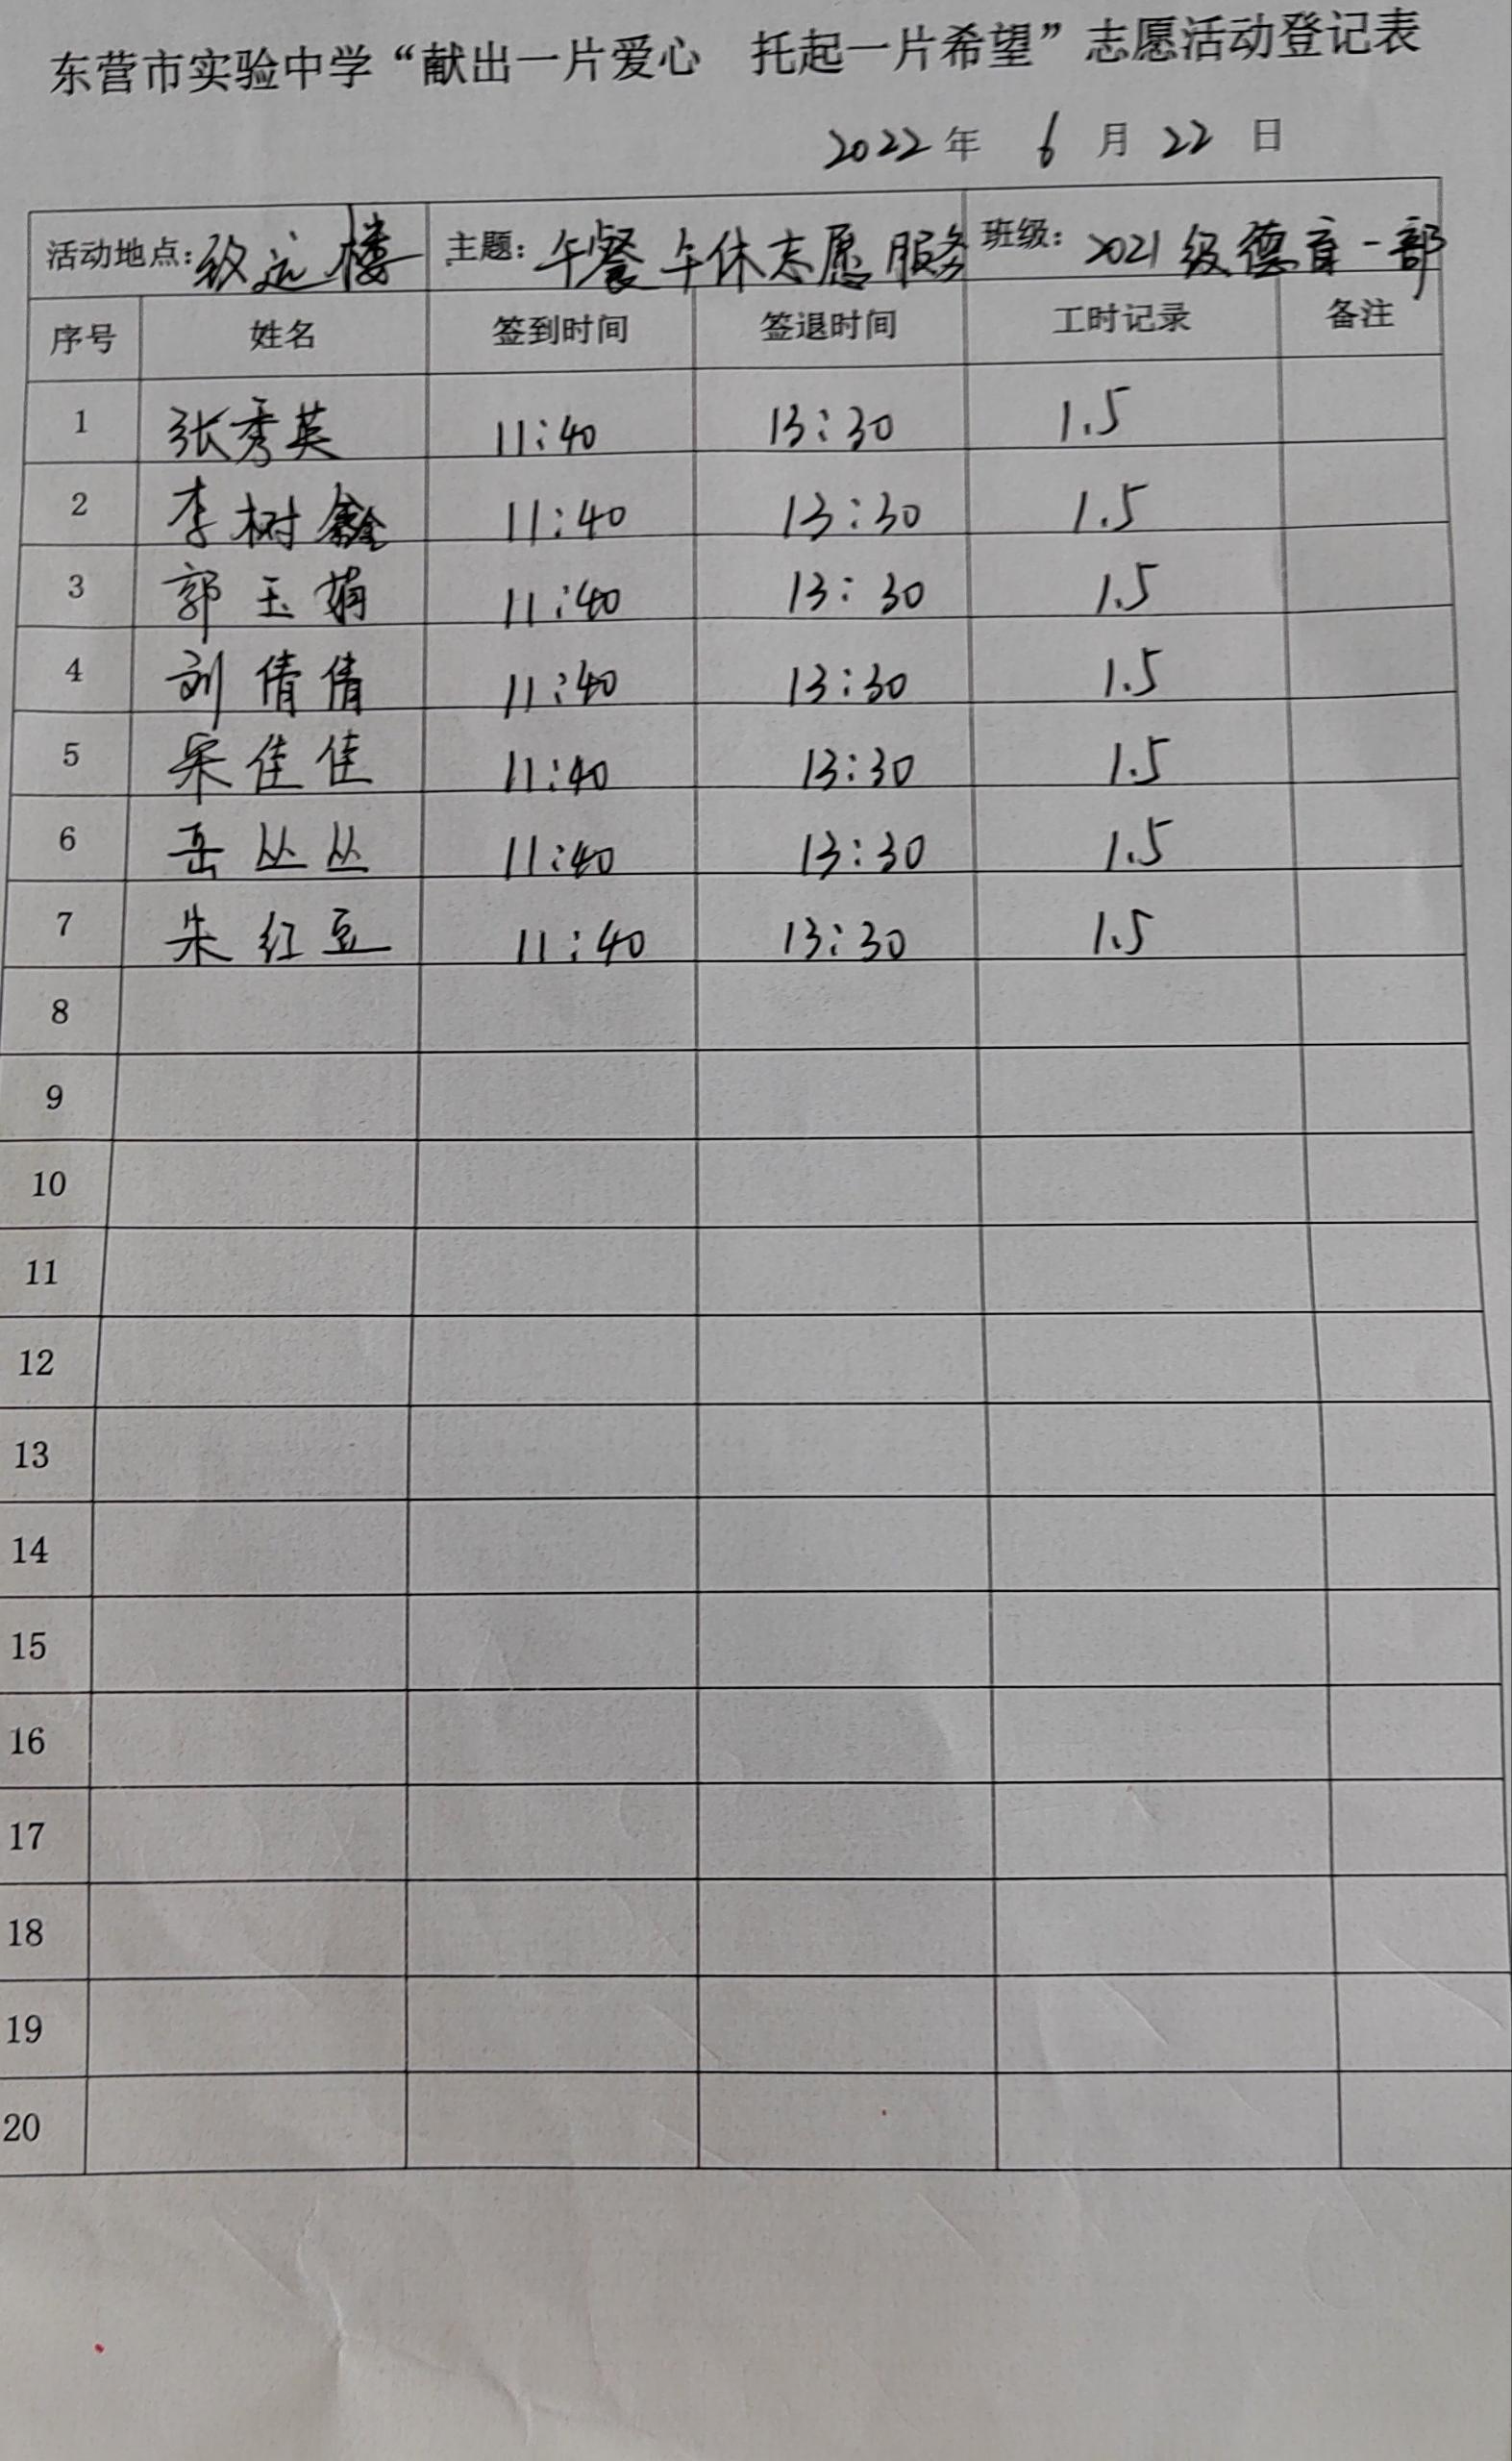 东营市实验中学“献出一片爱心 托起一片希望”志愿活动登记表
2022年 6 月 22 日
活动地点: 致远楼 主题: 午餐午休志愿服务 班级: 2021级德育一部
序号 姓名 签到时间 签退时间 工时记录 备注
1 张秀英 11:40 13:30 1.5
2 李树 11:40 13:30 1.5
3 郭玉娟 11:40 13:30 1.5
4 刘倩倩 11:40 13:30 1.5
5 宋佳佳 11:40 13:30 1.5
6 岳丛丛 11:40 13:30 1.5
7 朱红豆 11:40 13:30 1.5
8
9
10
11
12
13
14
15
16
17
18
19
20